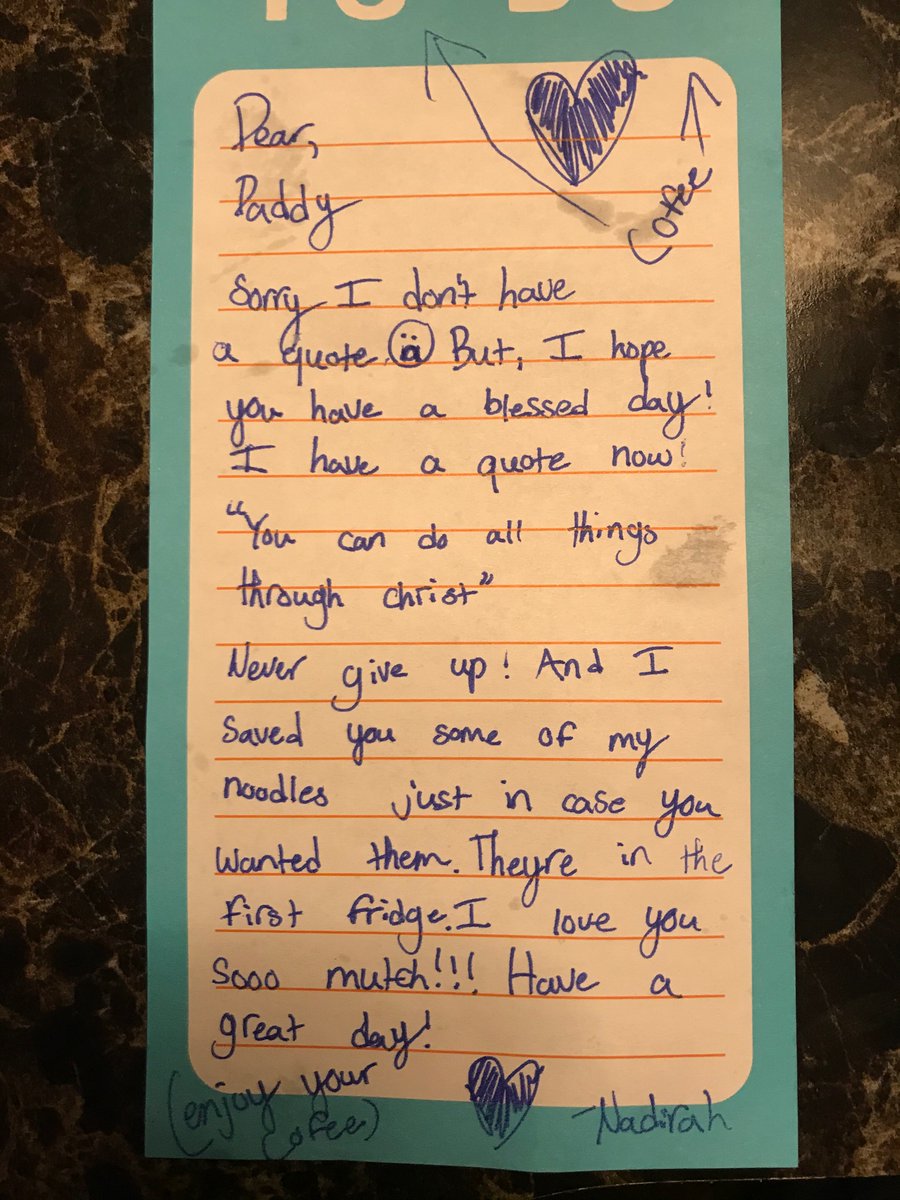 TO DO
Dear,
Cofee
Daddy
Sorry I don't have
a quote. But, I hope
you have a blessed day!
I have a quote now!
"You can do all things
through christ"
Never give up! And I
saved you some of my
noodles just in case you
wanted them. Theyre in the
first fridge. I love you
sooo mutch!!! Have a
great day!
(enjoy your
cofee)
-Nadirah